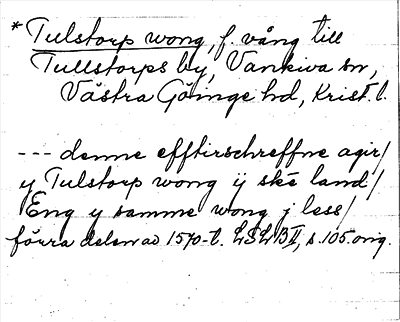 * Tulstorp wong, f. vång till
Tullstorps by, Vankiva sn,
Västra Göinge hd, Krist. l.
--- denne efftirschreffne agir/
y Tulstorp wong ij ske land/
Eng y samme wong j less/
förra delen av 1570-t. LSLB II, s. 105. orig.